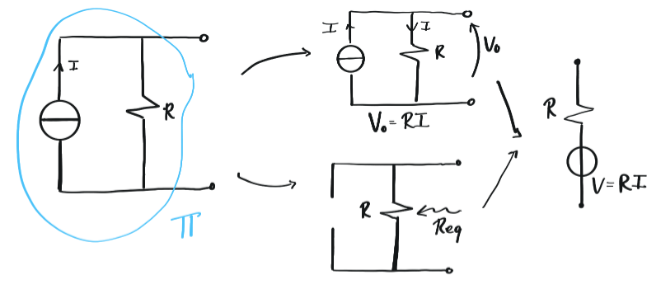 I
R
π
I
I
R
V₀
V₀ = RI
R
Req
R
V = RI